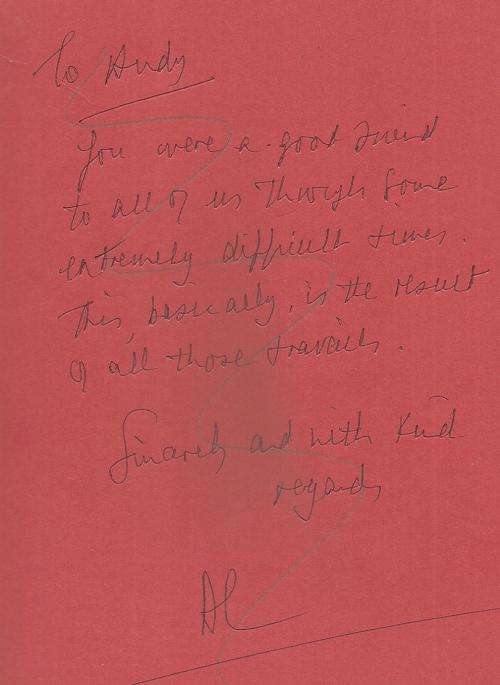 To Andy
You were a good friend
to all of us through some
extremely difficult times.
This, basically, is the result
of all those travails.
Sincerely and with kind
regards
Al